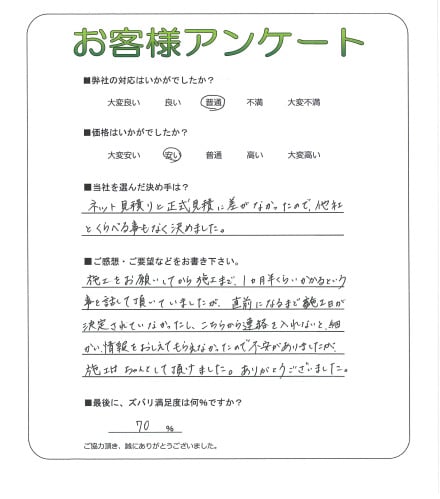 お客様アンケート
■弊社の対応はいかがでしたか？
大変良い 良い 普通 不満 大変不満
■価格はいかがでしたか？
大変安い 安い 普通 高い 大変高い
■当社を選んだ決め手は？
ネット見積りと正式見積に差がなかったので、他社
とくらべる事もなく決めました。
■ご感想・ご要望などをお書き下さい。
施工をお願いしてから施工まで、1ヵ月半くらいかかるという
事を話して頂いていましたが、直前になるまで施工日が
決定されていなかったし、こちらから連絡を入れないと、細
かい情報をおしえてもらえなかったので不安がありましたが、
施工はちゃんとして頂けました。ありがとうございました。
■最後に、ズバリ満足度は何%ですか？
70 %
ご協力頂き、誠にありがとうございました。